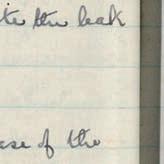 ite the leak
ase of the